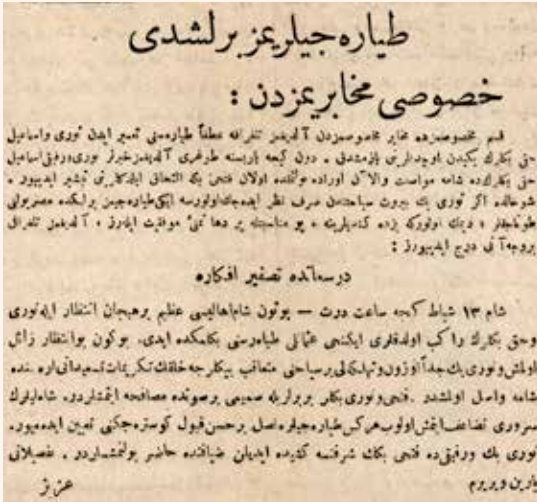 طیاره‌جیلریمز برلشدی
خصوصی مخابریمزدن :
قسم مخصوصمزده مخابر مخصوصمزدن آلدیغمز تلغرافه عطفاً طیاره‌سنی تعمیر ایدن نوری واسماعیل
حقی بكلرك یكیدن اوچدقلرینی یازمشدق . دون كیجه یاریسنه طوغری آلدیغمز خبرلر نوری ورفیقی اسماعیل
حقی بكلرك ده شامه مواصلت والآن اوراده بولنده اولان فتحی بكه التحاق ایلدكلرینی تبشیر ایدییور .
شو حالده اكر نوری بك بیروت سیاحتندن صرف نظر ایده‌جك اولورسه ایكی طیاره‌جیمز برلكده مصر یولنی
طوته‌جقلر ، دیمك اولورك بزده كندیلرینه ، بو مناسبتله بر دها تمنئ موفقیت ایدرز ، آلدیغمز تلغرافی
بروجه آتی درج ایدییورز :
درسعادتده تصفیر افكاره
شام ١٣ شباط كیجه ساعت درت — بوتون شام اهالیسی عظیم بر هیجان انتظار ایله نوری
وحقی بكلرك راكب اولدقلری ایكنجی عثمانلی طیاره‌سنی بكلمكده ایدی. بوكون بو انتظار زائل
اولمش ونوری بك جداً اوزون وتهلكه‌لی بر سیاحتی متعاقب بیكلرجه خلقك تكریمات صمیمانه‌لری آره‌سنده
شامه واصل اولمشدر . فتحی ونوری بكلر بربرلریله صمیمی بر صورتده مصافحه ایتمشلردر. شاملیلرك
سروری تضاعف ایتمش اولوب هركس طیاره‌جیلره نصل بر حسن قبول كوستره‌جكنی تعیین ایده‌میور.
نوری بك ورفیقی ده فتحی بكك شرفنه كشیده ایدیلن ضیافتده حاضر بولنمشلردر . تفصیلاتی
یارین ویریرم
عزیز